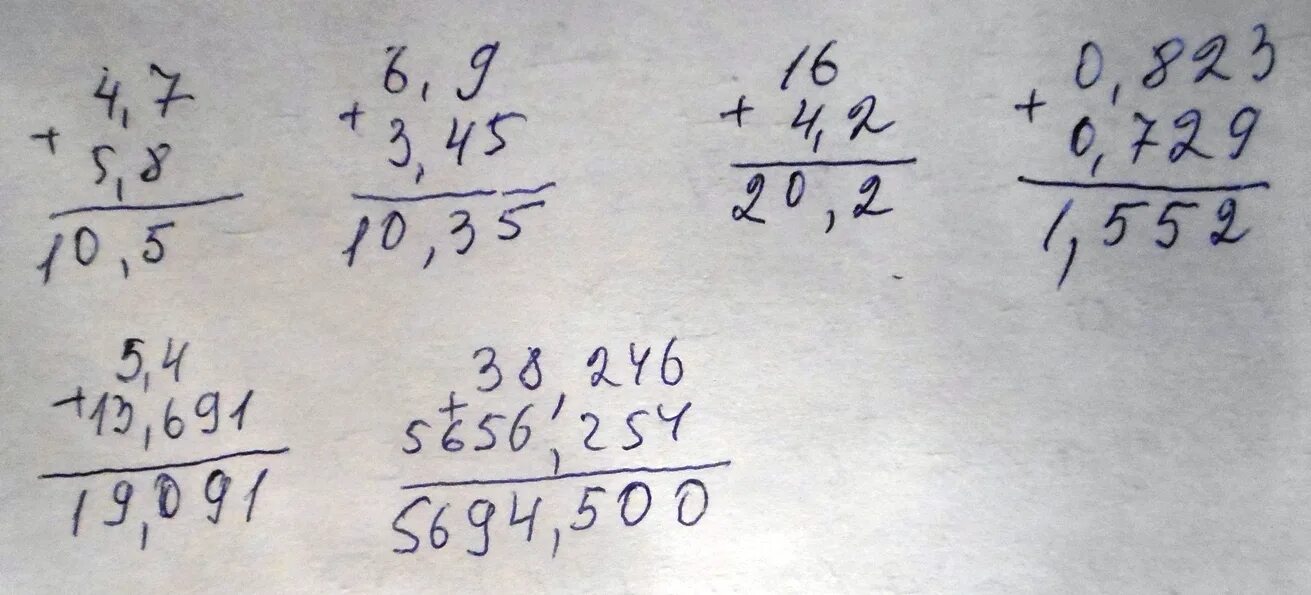 4,7
+ 5,8
10,5
6,9
+ 3,45
10,35
16
+ 4,2
20,2
0,823
+ 0,729
1,552
5,4
+ 13,691
19,091
38,246
+ 5656,254
5694,500